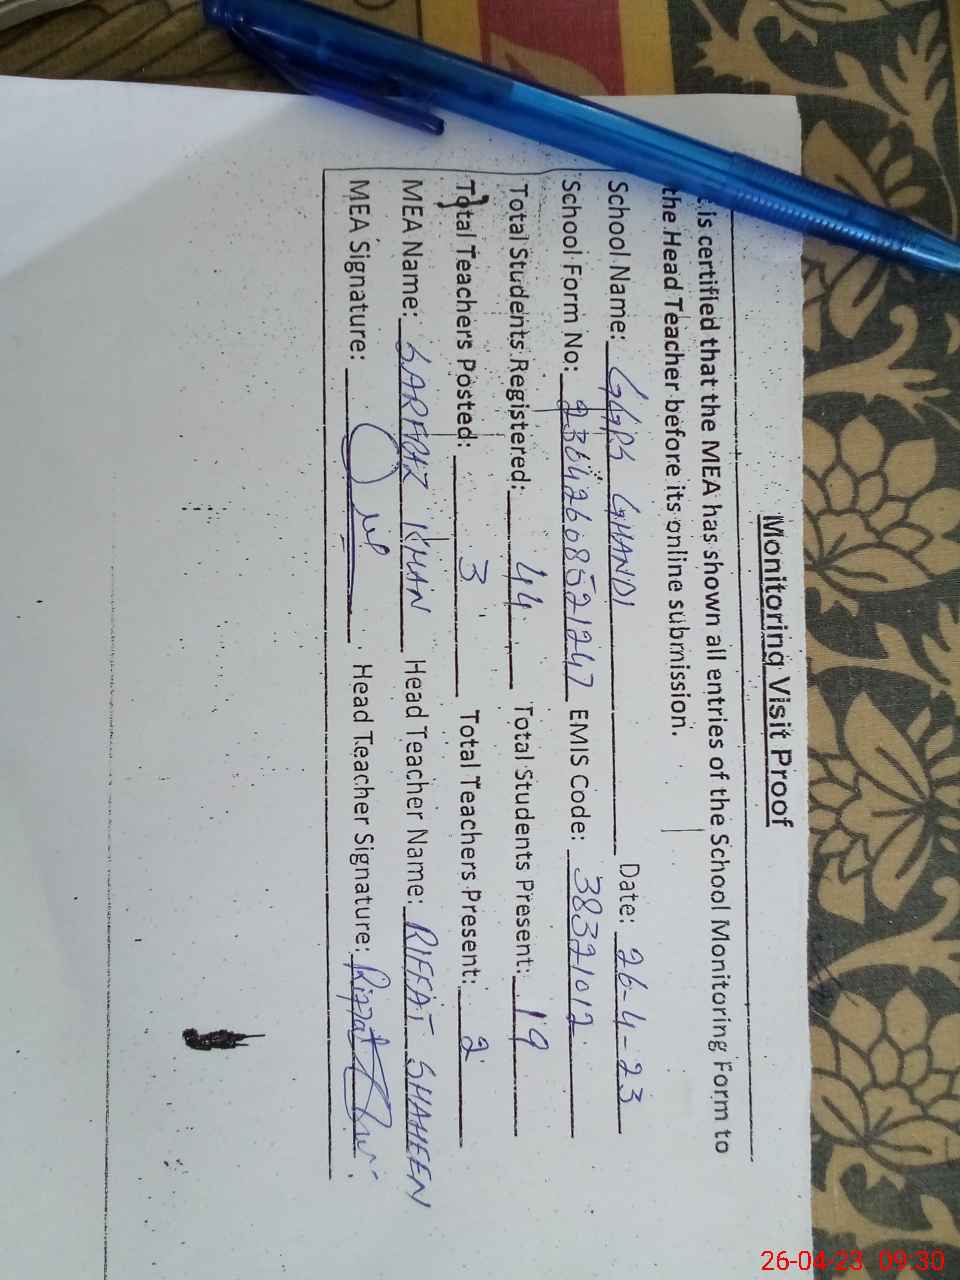 Monitoring Visit Proof
is certified that the MEA has shown all entries of the School Monitoring Form to
the Head Teacher before its online submission.
School Name: GGPS GHANDI Date: 26-4-23
School Form No: 23642608521247 EMIS Code: 38321012
Total Students Registered: 44 Total Students Present: 19
Total Teachers Posted: 3 Total Teachers Present: 2
MEA Name: SARFRAZ KHAN Head Teacher Name: RIFFAT SHAHEEN
MEA Signature: Head Teacher Signature: Riffat
26-04-23 09:30